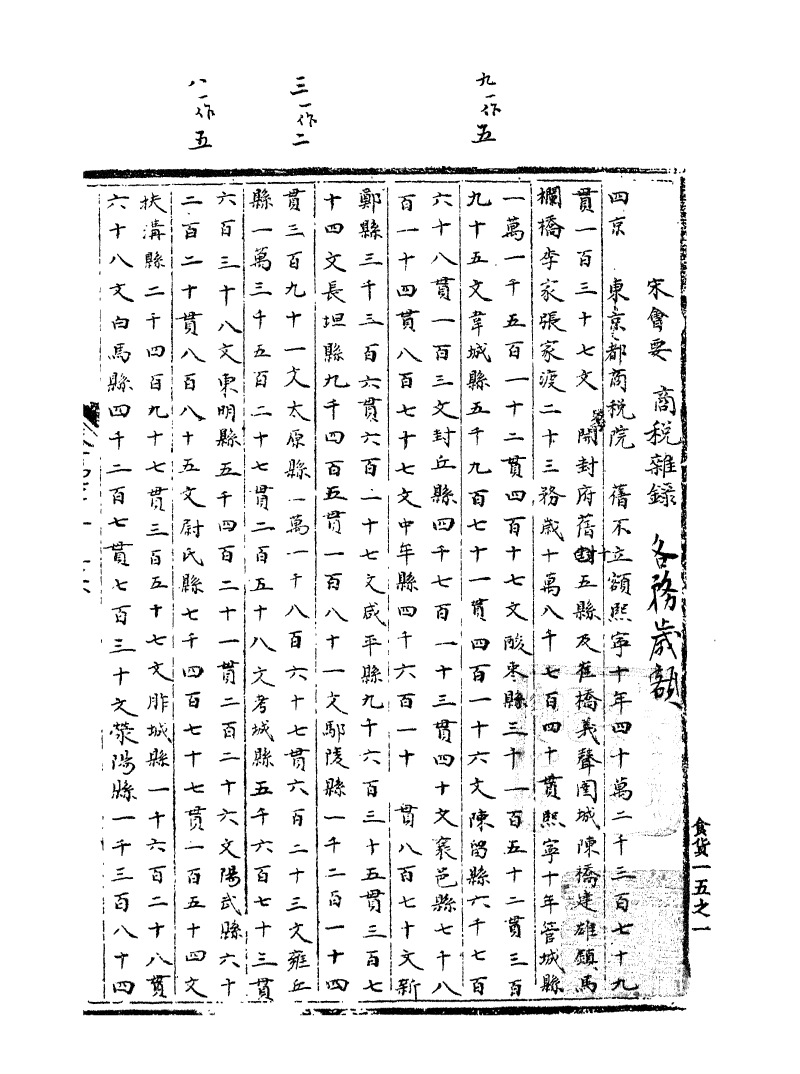 九一作五
三一作二
八一作五
宋會要 商稅雜錄 各務歲額
四京 東京都商稅院 舊不立額熙寧十年四十萬二千三百七十九
貫一百三十七文 開封府舊十五縣及崔橋義聲圉城陳橋建雄鎮馬
欄橋李家張家渡二十三務歲十萬八千七百四十貫熙寧十年管城縣
一萬一千五百一十二貫四百十七文酸棗縣三千一百五十二貫三百
九十五文韋城縣五千九百七十一貫四百一十六文陳留縣六千七百
六十八貫一百三文封丘縣四千七百一十三貫四十文襄邑縣七千八
百一十四貫八百七十七文中牟縣四千六百一十 貫八百七十文新
鄭縣三千三百六貫六百一十七文咸平縣九千六百三十五貫三百七
十四文長垣縣九千四百五貫一百八十一文鄢陵縣一千二百一十四
貫三百九十一文太原縣一萬一千八百六十七貫六百二十三文雍丘
縣一萬三千五百二十七貫二百五十八文考城縣五千六百七十三貫
六百三十八文東明縣五千四百二十一貫二百二十六文陽武縣六十
二百二十貫八百八十五文尉氏縣七千四百七十七貫一百五十四文
扶溝縣二千四百九十七貫三百五十七文胙城縣一十六百二十八貫
六十八文白馬縣四千二百七貫七百三十文滎陽縣一千三百八十四
食貨一五之一